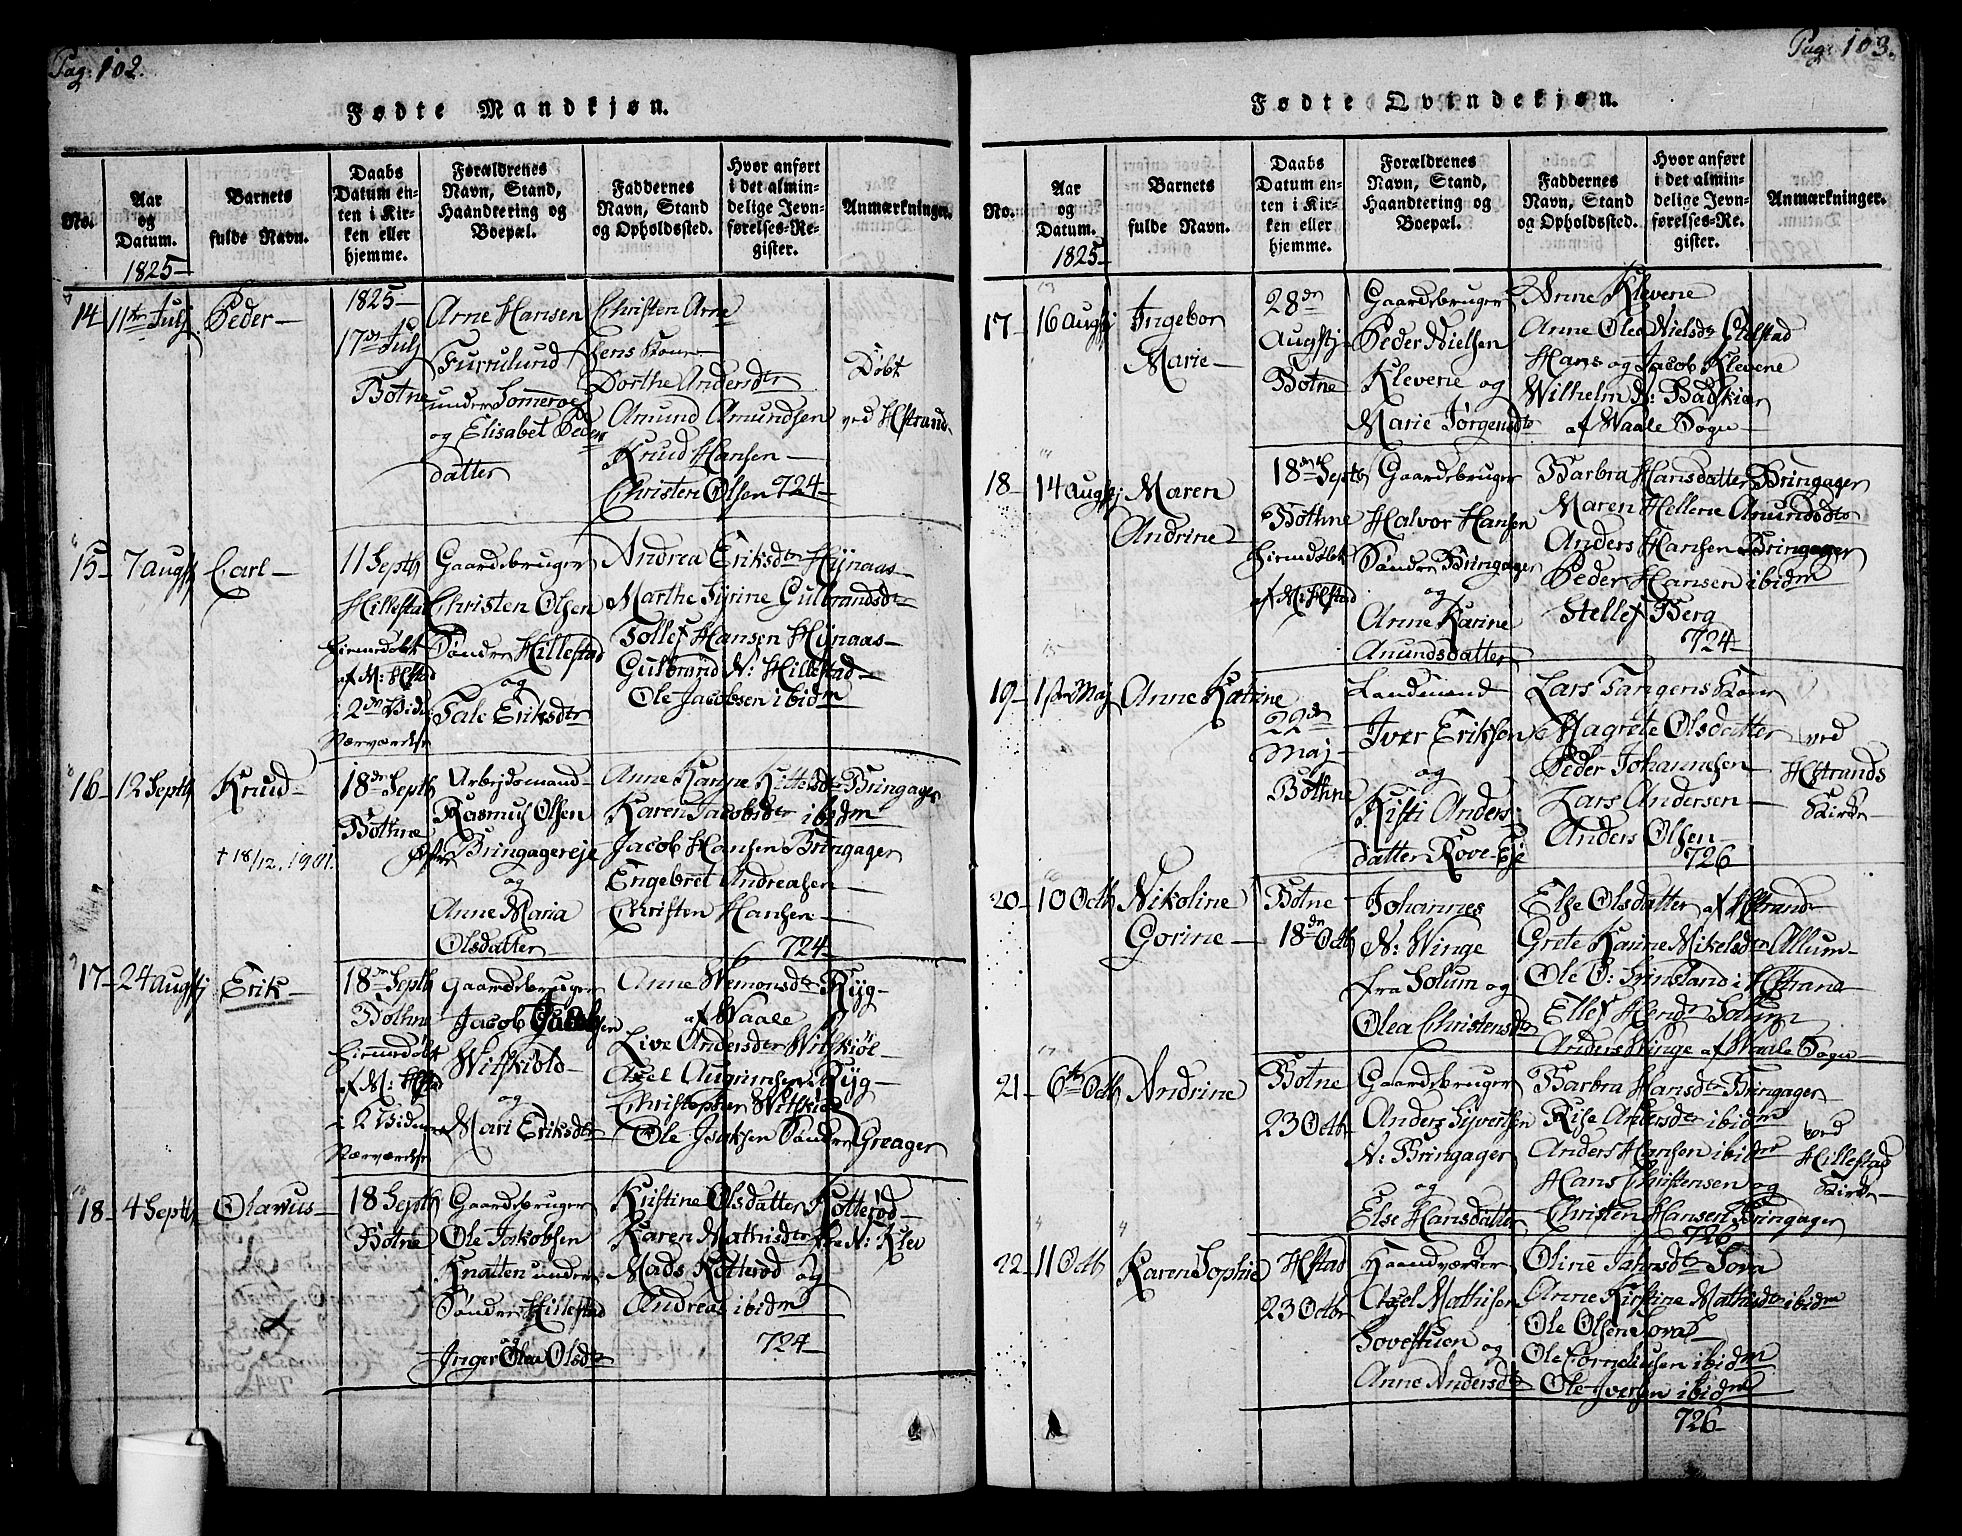 Pag: 102.
Fødte Mandkjøn.
No.
Aar og Datum.
Barnets fulde Navn.
Daabs Datum enten i Kirken eller hjemme.
Forældrenes Navn, Stand, Haandtering og Boepæl.
Faddernes Navn, Stand og Opholdssted.
Hvor anført i det almindelige Jevnførelses-Register.
Anmærkninger.
1825
14
11te Julj
Peder
1825
17de Julj
Botne
Arne Hansen
Furrulund
under
og Elisabet Peders
datter
Christen Arne
sens Kone
Dorthe Andersdtr
Amund Amundsen
Knud Hansen
Christen Olsen 724
Døbt
ved Hstrand
15
7 Augstj
Carl
11 Septb
Hillestad
Hiemdøbt
af M: Hstad
i 2de Vidners
Nærværelse
Gaardebruger
Christen Olsen
Søndre Hillestad
og
Tale Eriksdtr
Andrea Eriksdtr Hÿnaas
Marthe Sirine Gulbrandsdtr
Tollef Hansen Hÿnaas
Gulbrand N: Hillestad
Ole Jacobsen ibidm
16
12 Septb
Knud
† 18/12. 1901.
18de Septb
Bothne
Arbejdsmand
Rasmus Olsen
Bringagereje
og
Anne Maria
Olsdatter
Anne Karine Kittilsdtr Bringager
Karen Jacobsdtr ibidm
Jacob Hansen Bringager
Engebret Andreasen
Christen Hansen
724
17
24 Augstj
Erik
18de Septb
Bothne
Hiemdøbt
af M: Hstad
i 2 Vidners
Nærværelse
Gaardebruger
Jacob Jacobsen
Wifskiöld
og
Mari Eriksdtr
Anne Wemonsdtr Ryg
af Waale
Live Andersdtr Wifskiöl
Axel Augrimsen Ryg
Christopher Wifskiøl
Ole Isaksen Søndre Greager
18
4 Septb
Olavus
18 Septb
Botne
Gaardebruger
Ole Jakobsen
Knatten under
Søndre Hillestad
og
Inger Olea Olsdtr
Kristine Olsdatter Kotterød
Karen Mathisdtr fra N: Klev
Mads Kotterød og
Andreas ibidm
724
Pag: 103.
Fødte Qvindekjøn.
No.
Aar og Datum.
Barnets fulde Navn.
Daabs Datum enten i Kirken eller hjemme.
Forældrenes Navn, Stand, Haandtering og Boepæl.
Faddernes Navn, Stand og Opholdssted.
Hvor anført i det almindelige Jevnførelses-Register.
Anmærkninger.
1825
17
16 Augstj
Ingebor
Marie
28de
Augstj
Botne
Gaardebruger
Peder Nielsen
Klevene og
Marie Jørgensdtr
Anne Klevene
Anne Oles Nielsdtr
Hans og Jacob Klevene
Wilhelm N: Badskiær
af Waale Sogn
18
14 Augstj
Maren
Andrine
18de Septb
Bothne
Hiemdøbt
af M: Hstad
Gaardebruger
Halvor Hansen
Søndre Bringager
og
Anne Karine
Anundsdatter
Barbra Hansdatter Bringager
Maren Hellene Anundsdtr
Anders Hansen Bringager
Peder Hansen ibidm
Stellef Berg
724
19
1ste Maj
Anne Katrine
22de
Maj
Bothne
Landmand
Iver Eriksen
og
Kisti Anders
datter Rove Eje
Lars Tangens Kone
Magrete Olsdatter
Peder Johannesen
Lars Andersen
Anders Olsen
726
ved
Hstrands
Kirke
20
10 Octb
Nikoline
Gorine
Botne
18de Octb
Johannes
N: Winge
fra Solum og
Olea Christensdtr
Else Olsdatter af Hstrand
Grete Karine Mikelsdtr Allum
Ole O: Frinsland i Hstrand
Ellef Hendr Solum
Anders Winge af Waale Sogn
21
6te Octb
Andrine
Botne
23 Octb
Gaardebruger
Anders Syversen
N: Bringager
og
Else Hansdatter
Barbra Hansdtr Bringager
Rise Andersdtr ibidm
Anders Hansen ibidm
Hans Christensen og
Christen Hansen Bringager
726
ved
Hillestad
Kirke
22
11 Octb
Karen Sophie
Hstad
23 Octbr
Haandværker
Axel Mathisen
Sovestuen og
Anne Andersdtr
Oline Jahnsdtr Sora
Anne Kirstine Mathisdtr ibidm
Ole Olsen Sora
Ole Corneliusen ibidm
Ole Iversen ibidm
726